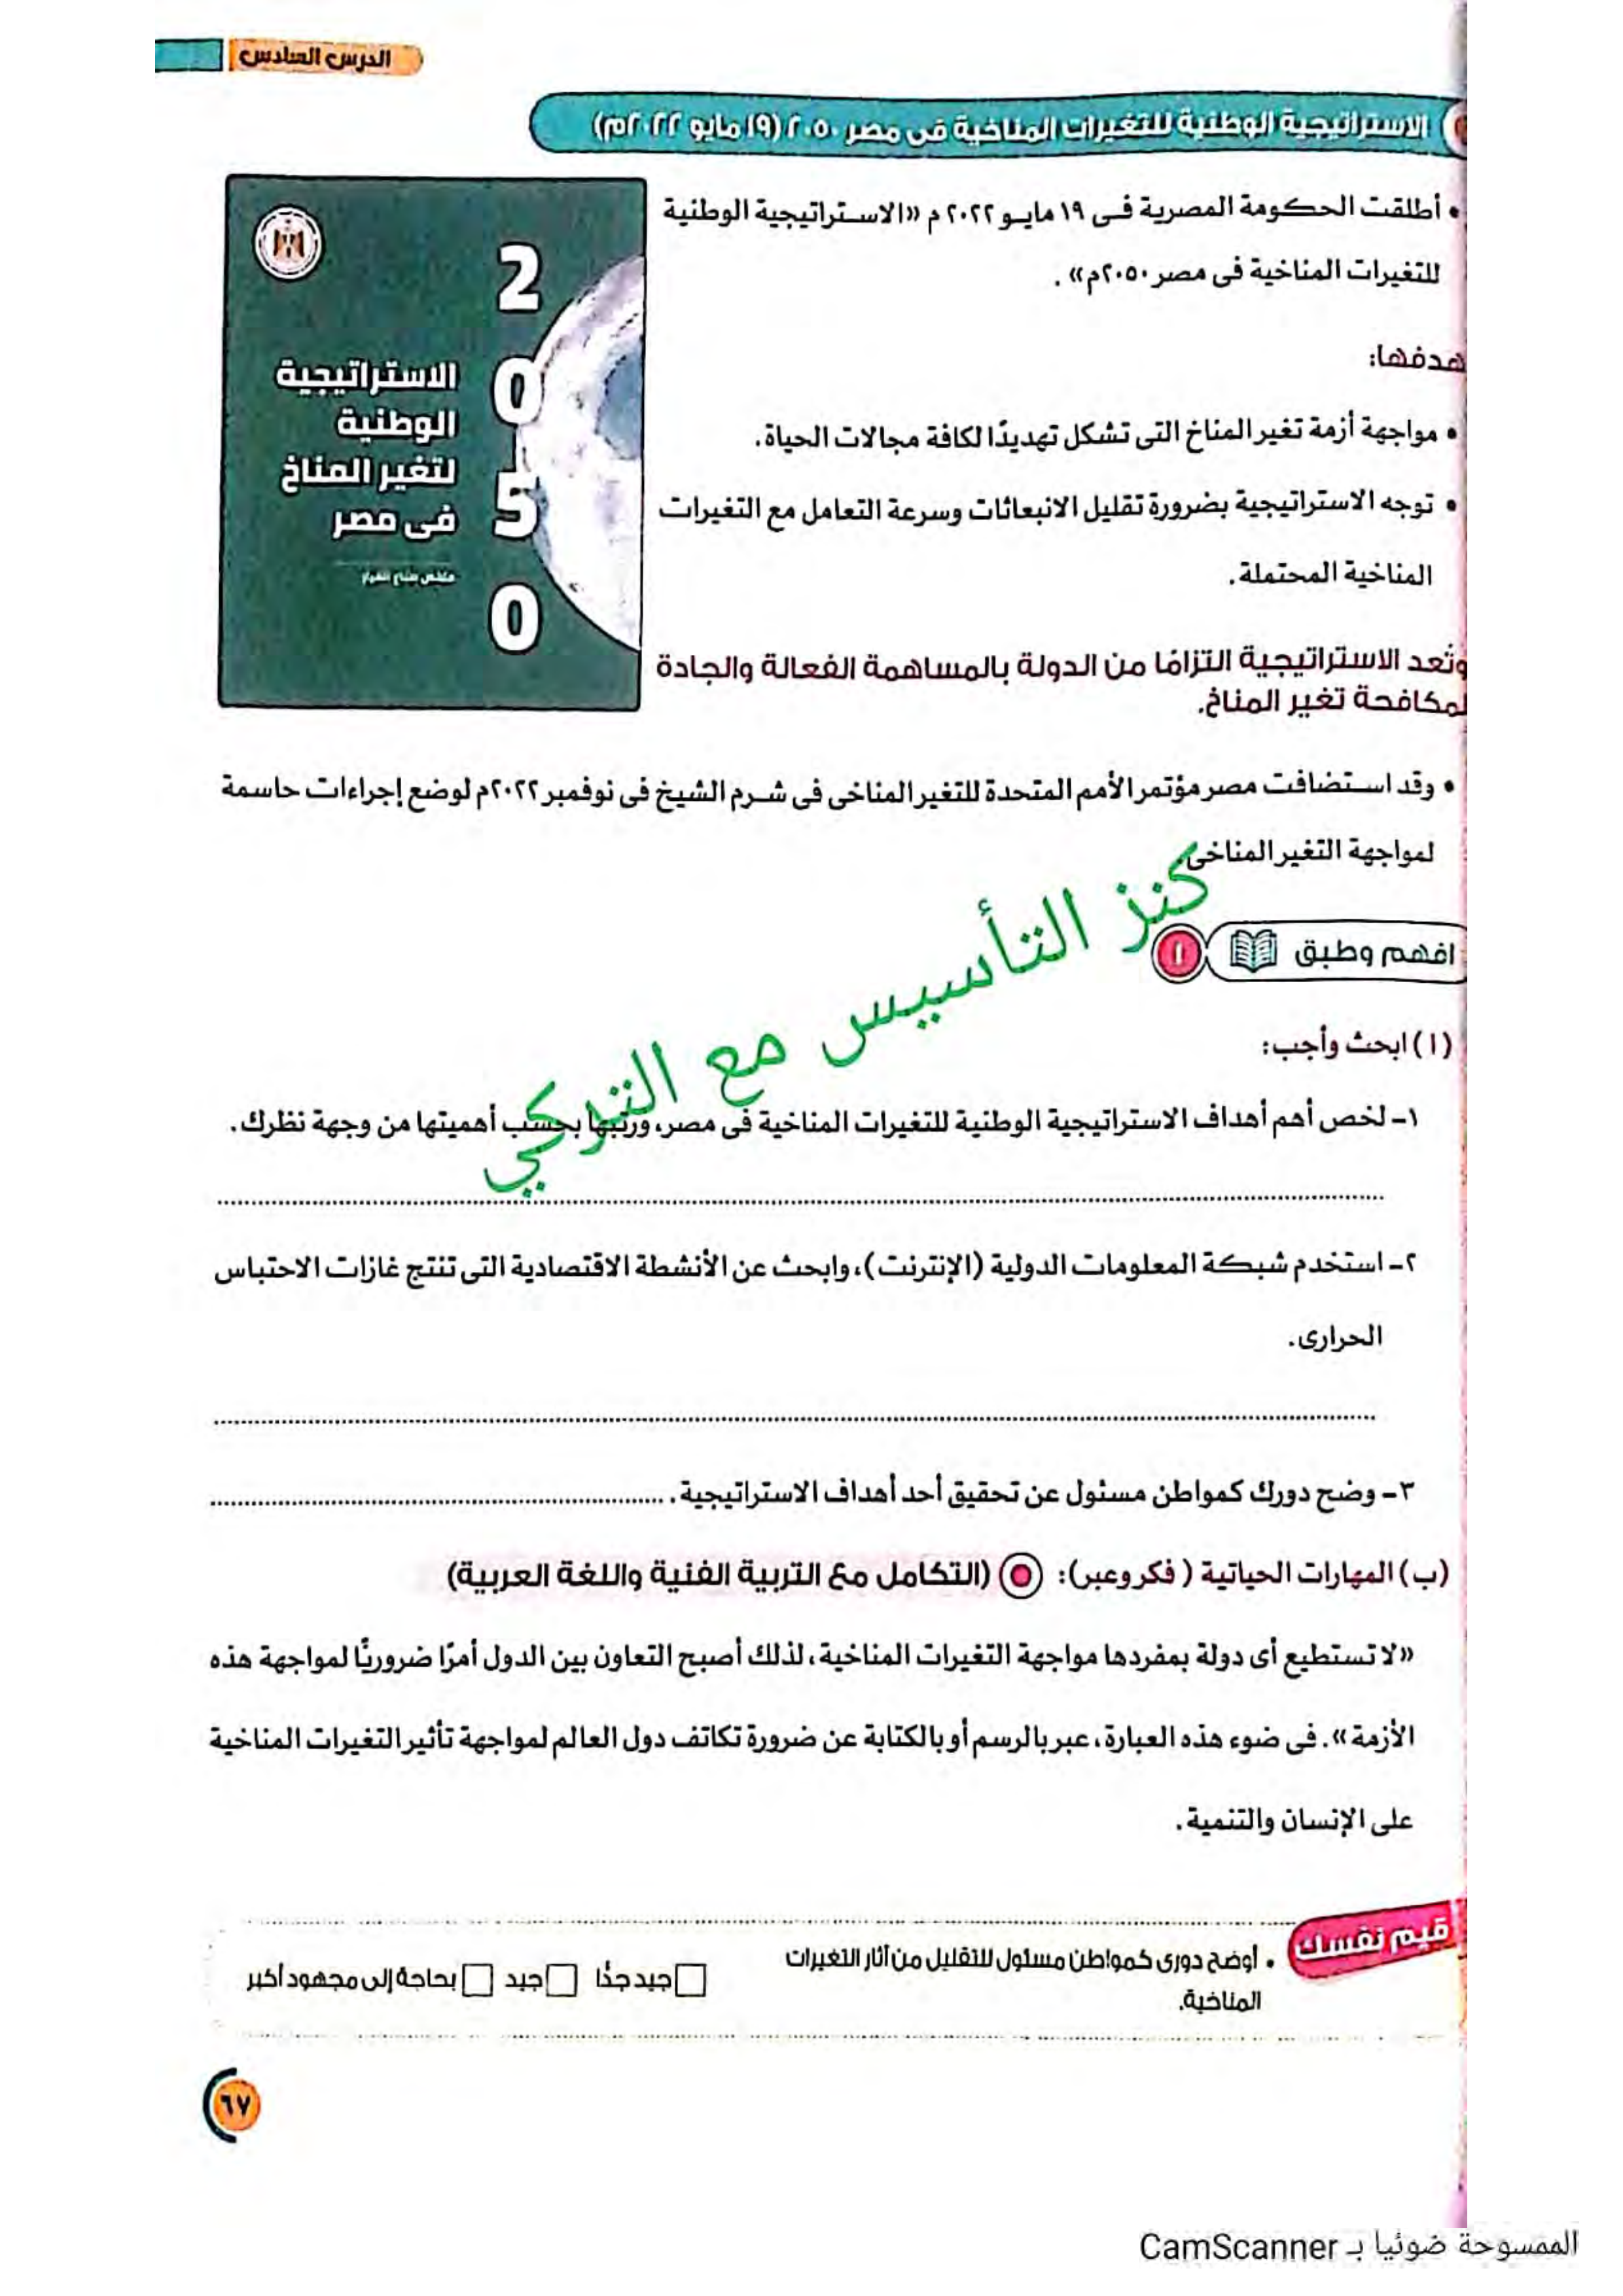 الدرس السادس
الاستراتيجية الوطنية للتغيرات المناخية فى مصر ٢٠٥٠ (١٩ مايو ٢٠٢٢م)
• أطلقت الحكومة المصرية فى ١٩ مايو ٢٠٢٢ م «الاستراتيجية الوطنية
للتغيرات المناخية فى مصر ٢٠٥٠م» .
هدفها:
• مواجهة أزمة تغير المناخ التى تشكل تهديدًا لكافة مجالات الحياة.
• توجه الاستراتيجية بضرورة تقليل الانبعاثات وسرعة التعامل مع التغيرات
المناخية المحتملة.
وتُعد الاستراتيجية التزامًا من الدولة بالمساهمة الفعالة والجادة
لمكافحة تغير المناخ.
2
0
5
0
الاستراتيجية
الوطنية
لتغير المناخ
فى مصر
ملخص صناع القرار
• وقد استضافت مصر مؤتمر الأمم المتحدة للتغير المناخى فى شرم الشيخ فى نوفمبر ٢٠٢٢م لوضع إجراءات حاسمة
لمواجهة التغير المناخى.
كنز التأسيس مع التركي
افهم وطبق ١
(١) ابحث وأجب:
١- لخص أهم أهداف الاستراتيجية الوطنية للتغيرات المناخية فى مصر، ورتبها بحسب أهميتها من وجهة نظرك.
٢- استخدم شبكة المعلومات الدولية (الإنترنت)، وابحث عن الأنشطة الاقتصادية التى تنتج غازات الاحتباس
الحرارى.
٣- وضح دورك كمواطن مسئول عن تحقيق أحد أهداف الاستراتيجية.
(ب) المهارات الحياتية ( فكر وعبر): (التكامل مع التربية الفنية واللغة العربية)
«لا تستطيع أى دولة بمفردها مواجهة التغيرات المناخية، لذلك أصبح التعاون بين الدول أمرًا ضروريًا لمواجهة هذه
الأزمة». فى ضوء هذه العبارة، عبر بالرسم أو بالكتابة عن ضرورة تكاتف دول العالم لمواجهة تأثير التغيرات المناخية
على الإنسان والتنمية.
قيم نفسك
• أوضح دورى كمواطن مسئول للتقليل من آثار التغيرات
المناخية.
جيد جدًا جيد بحاجة إلى مجهود أكبر
٦٧
الممسوحة ضوئيا بـ CamScanner